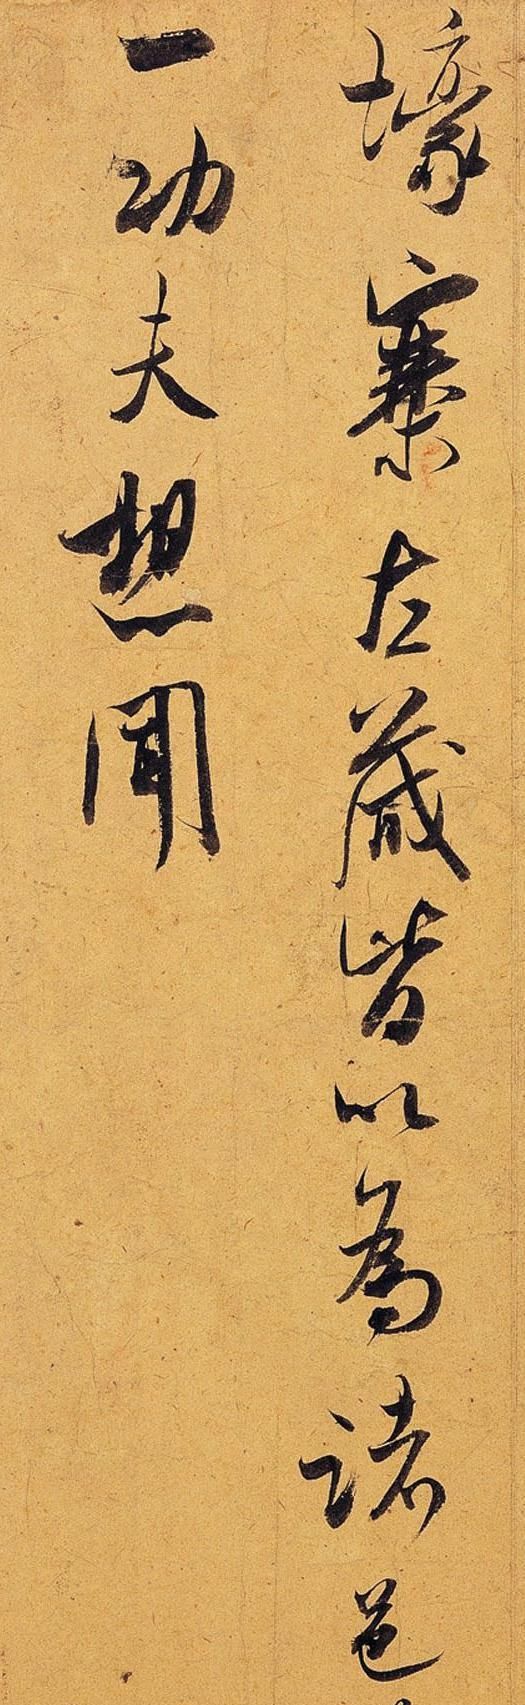 壕寨左藏皆以為諸邑
一功夫想聞